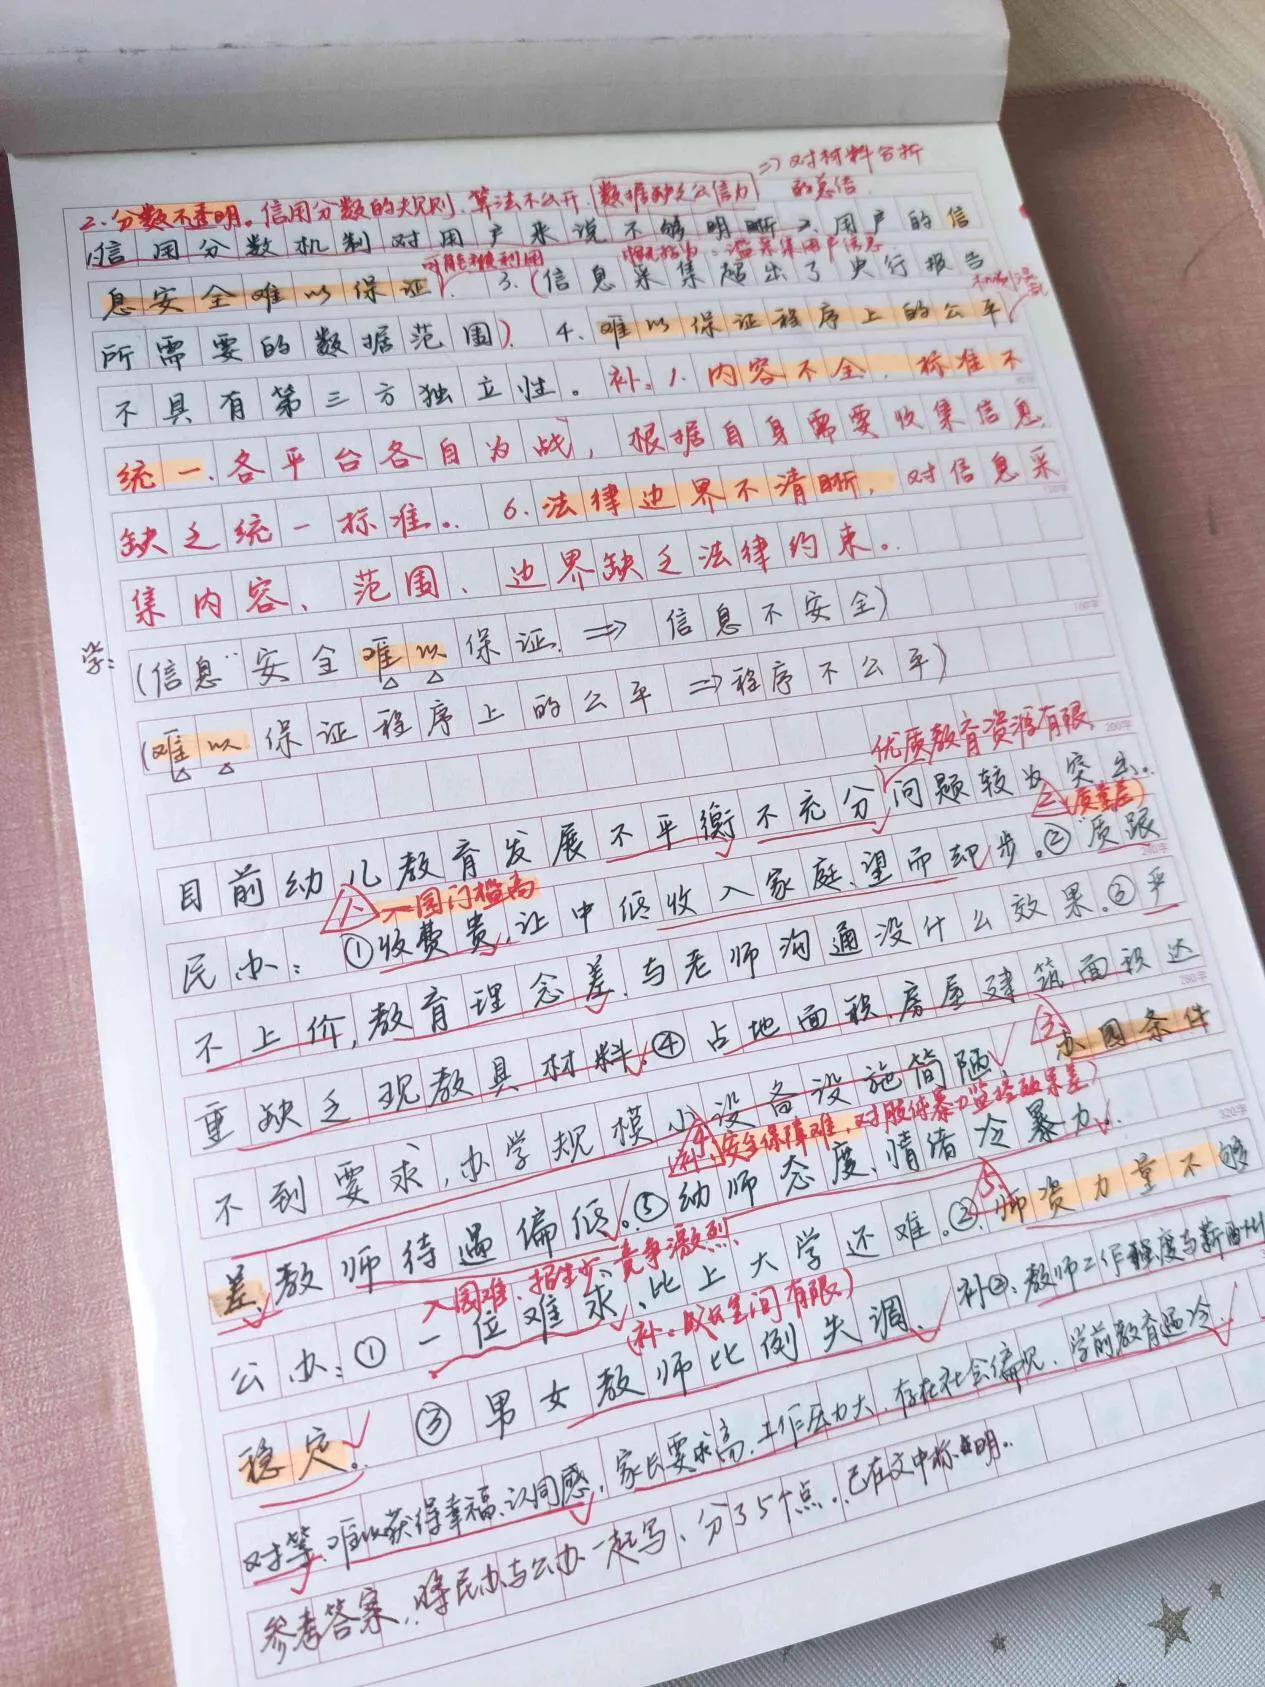 =>对材料分析
的总结.
2.分数不透明。信用分数的规则、算法不公开.数据缺乏公信力
1信用分数机制对用户来说不够明晰.2.用户的信
可能被利用
概括为:滥采集用户信息
息安全难以保证. 3.(信息采集超出了央行报告
所需要的数据范围). 4.难以保证程序上的公平
不具有第三方独立性。补:1.内容不全,标准不
统一.各平台各自为战,根据自身需要收集信息,
缺乏统一标准。. 6.法律边界不清晰,对信息采
集内容、范围、边界缺乏法律约束。
学:(信息"安全难以保证.=>信息不安全)
(难以保证程序上的公平=>程序不公平)
优质教育资源有限
目前幼儿教育发展不平衡不充分问题较为突出.
1.入园门槛高
2(质量差)
民办:①收费贵,让中低收入家庭、望而却步。②质跟
不上价,教育理念差、与老师沟通没什么效果.③严
重缺乏现教具材料.④占地面积、房屋建筑面积达
3.办园条件
不到要求,办学规模小设备设施简陋,
补4.安全保障难,对肢体暴力监控效果差)
差、教师待遇偏低。⑤幼师态度、情绪冷暴力.
入园难、招生少、竞争激烈.
5.师资力量不够
公办:①一位难求、比上大学还难。②
(补。成长空间有限)
稳定。 ③男女教师比例失调、补④、教师工作强度与薪酬
对等、难以获得幸福、认同感,家长要求高、工作压力大,存在社会偏见、学前教育遇冷.
参考答案,将民办与公办一起写、分了5个点。已在文中标明..